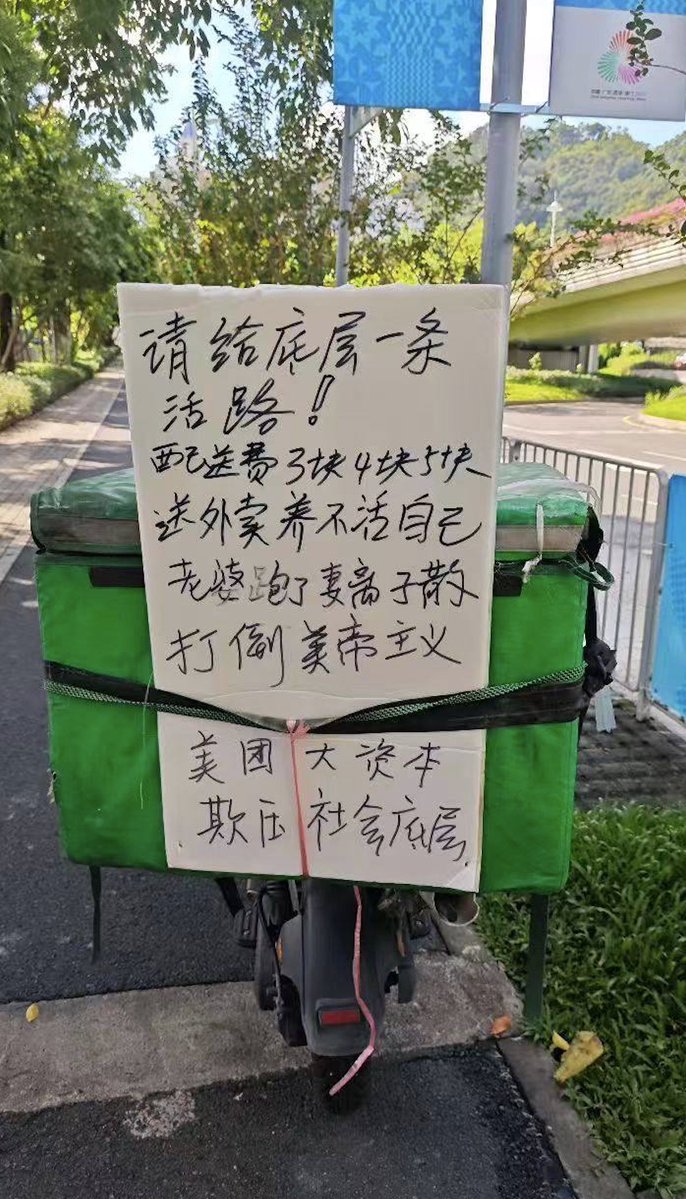 请给底层一条
活路！
配送费3块4块5块
送外卖养不活自己
老婆跑了妻离子散
打倒美帝主义
美团大资本
欺压社会底层